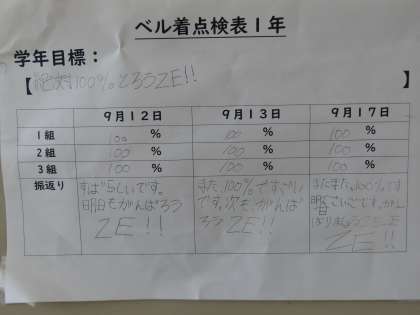 ベル着点検表1年
学年目標：
【絶対100%とろうZE!!】
9月12日 9月13日 9月17日
1組 100% 100% 100%
2組 100% 100% 100%
3組 100% 100% 100%
振返り
すばらしいです。
明日もがんばろう
ZE!!
また、100%ですごい
です。次も、がんば
ろうZE!!
またまた、100%です
ZE!!